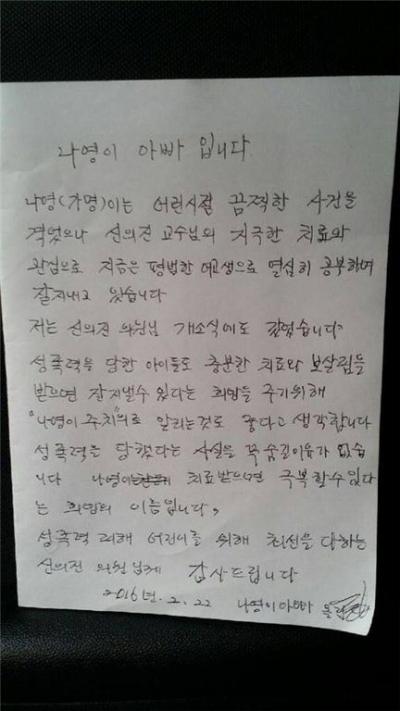 나영이 아빠 입니다
나영(가명)이는 어린시절 끔찍한 사건을
격었으나 신의진 교수님의 지극한 치료와
관심으로 지금은 평범한 여고생으로 열심히 공부하며
잘지내고 있습니다
저는 신의진 의원님 개소식에도 갔었습니다
성폭력을 당한 아이들도 충분한 치료와 보살핌을
받으면 잘지낼수 있다는 희망을 주기위해
"나영이 주치의로 알리는것도 좋다고 생각합니다
성폭력을 당했다는 사실을 꼭 숨길이유가 없습
니다 나영이는 치료받으면 극복할수 있다
는 희망의 이름입니다,
성폭력 피해 어린이를 위해 최선을 다하는
신의진 의원님께 감사드립니다
2016년. 2. 22 나영이아빠